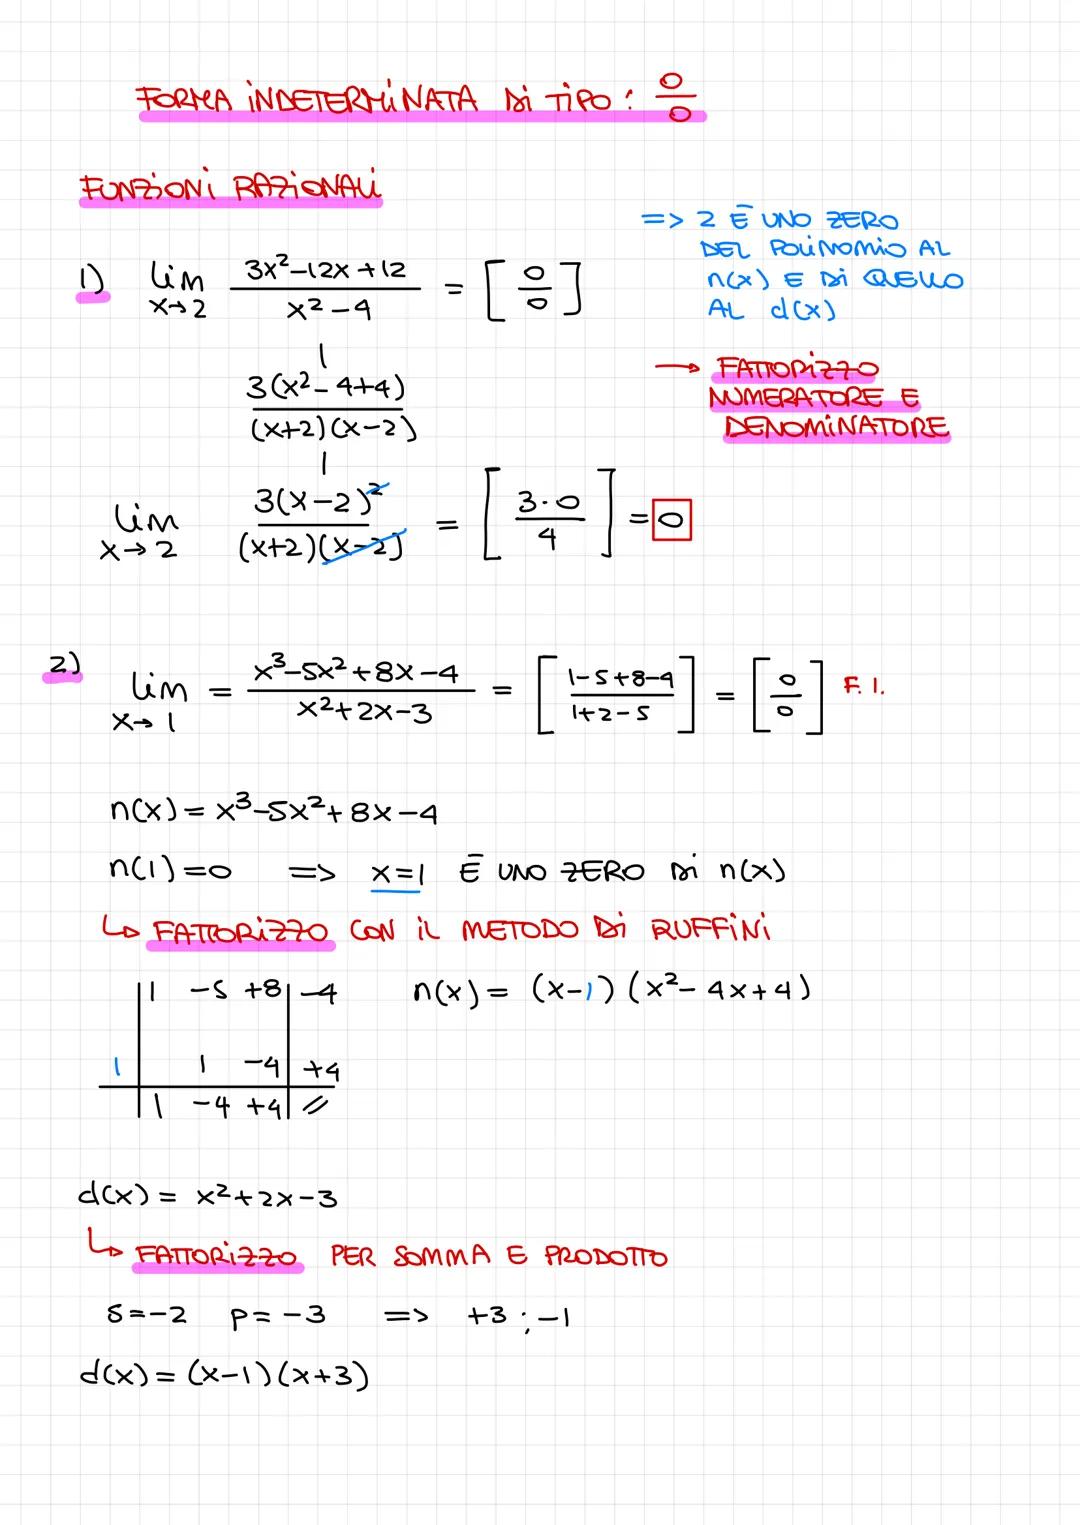 FORMA INDETERMINATA DI TIPO: 0/0
FUNZIONI RAZIONALI
1) lim x→2 (3x²-12x+12)/(x²-4) = [0/0]
=> 2 È UNO ZERO
DEL POLINOMIO AL
n(x) E DI QUELLO
AL d(x)
3(x²-4+4)/((x+2)(x-2))
→ FATTORIZZO
NUMERATORE E
DENOMINATORE
lim x→2 3(x-2)²/((x+2)(x-2)) = [3·0/4] = 0
2) lim x→1 = (x³-5x²+8x-4)/(x²+2x-3) = [(1-5+8-4)/(1+2-5)] = [0/0] F.I.
n(x) = x³-5x²+8x-4
n(1)=0 => x=1 È UNO ZERO DI n(x)
↳ FATTORIZZO CON IL METODO DI RUFFINI
| 1 -5 +8 | -4
n(x) = (x-1)(x²-4x+4)
1 | 1 -4 | +4
| 1 -4 +4 | //
d(x) = x²+2x-3
↳ FATTORIZZO PER SOMMA E PRODOTTO
s=-2 p=-3 => +3 ; -1
d(x) = (x-1)(x+3)